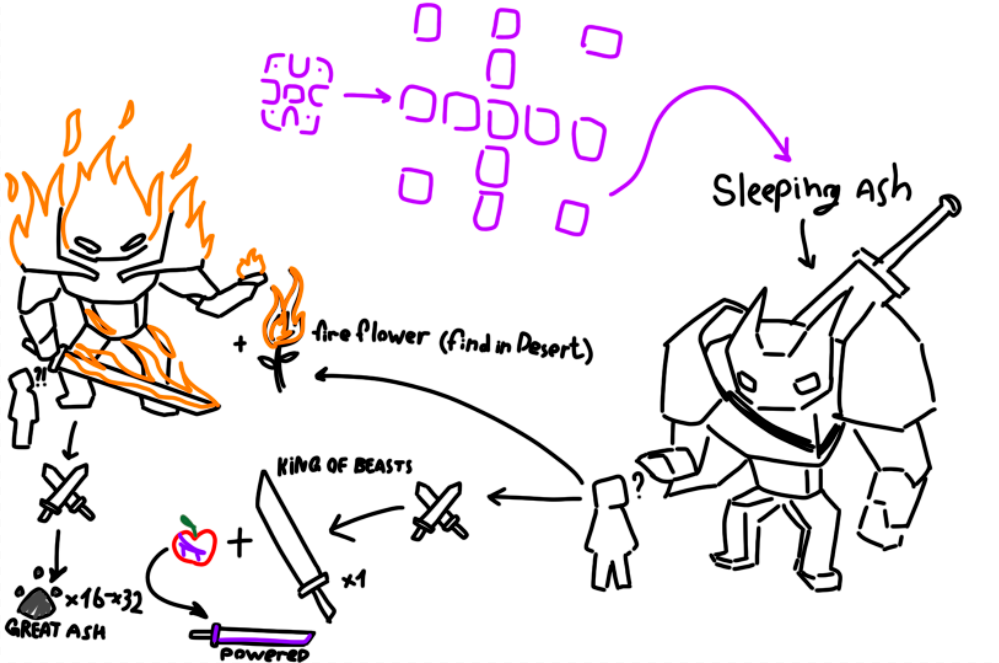 Sleeping Ash
+ fire flower (find in Desert)
?!
?
KING OF BEASTS
+
x1
x16-x32
GREAT ASH
powered